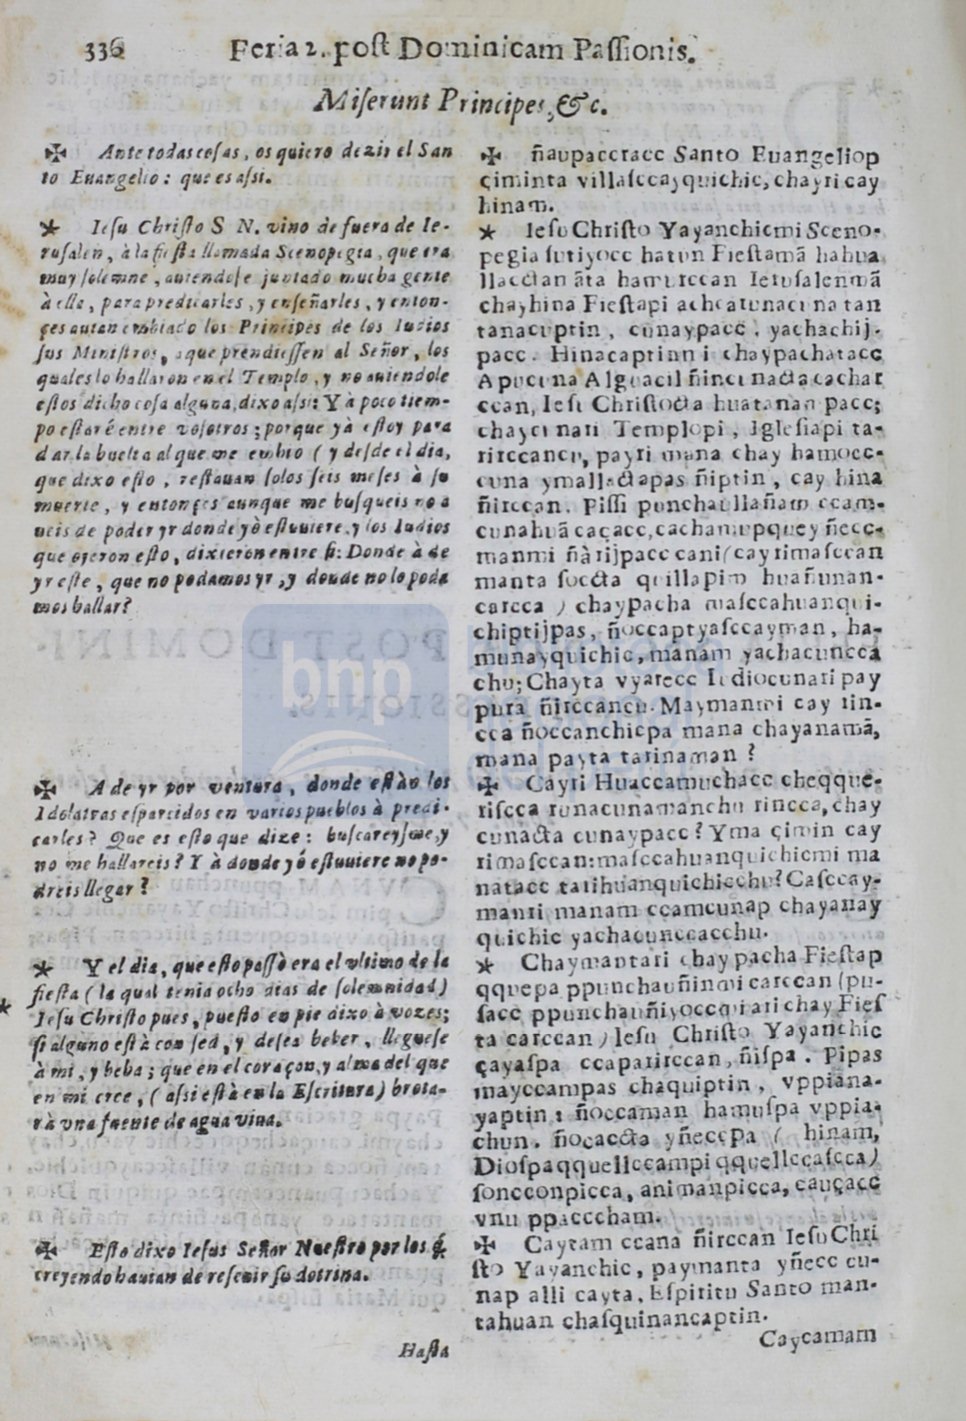 336 Feria 2. post Dominicam Passionis.
Miserunt Principes, &c.
✠ Ante todas cosas, os quiero dezir el San
to Euangelio: que es assi.
* Iesu Christo S N. vino de fuera de Ie-
rusalen, à la fiesta llamada Scenopegia, que era
muy solemne, auiendose juntado mucha gente
à ella, para predicarles, y enseñarles, y enton-
çes auian embiado los Principes de los Iudios
sus Ministros, aque prendiessen al Señor, los
quales lo hallaron en el Templo, y no auiendole
estos dicho cosa alguna, dixo assi: Y à poco tiem-
po estaré entre vosotros; porque yà estoy para
dar la buelta al que me embio ( y desde el dia,
que dixo esto, restauan solos seis meses à su
muerte, y entonçes aunque me busqueis no a
ueis de poder yr donde yò estuuiere. y los Iudios
que oyeron esto, dixieron entre si: Donde à de
yr este, que no podamos yr, y donde no lo poda
mos hallar?
✠ A de yr por ventura, donde estàn los
Idolatras esparcidos en varios pueblos à predi-
carles? Que es esto que dize: buscareysme, y
no me hallareis? Y à donde yó estuuiere no po-
dreis llegar?
* Y el dia, que esto passò era el vltimo de la
fiesta ( la qual tenia ocho dias de solemnidad)
* Iesu Christo pues, puesto en pie dixo à vozes;
si alguno està con sed, y desea beber, lleguese
à mi, y beba; que en el coraçon, y alma del que
en mi cree, ( assi està en la Escritura) brota-
rà vna fuente de agua viua.
✠ Esto dixo Iesus Señor Nuestro por los q̃
creyendo hauian de reseuir su dotrina.
Hasta
✠ ñaupaccracc Santo Euangeliop
çiminta villasccayquichic, chayri cay
hinam.
* Iesu Christo Yayanchicmi Sceno-
pegia sutiyocc hatun Fiestamã hahua
llacctan ãta hamurccan Ierusalenmã
chayhina Fiestapi achcatunacuna tan
tanacuptin, cunaypacc, yachachij-
pacc. Hinacaptinni chaypachatacc
Apucuna Alguacilñincunacta cachar
ccan, Iesu Christocta huatanan pacc;
chaycunari Templopi, Iglesiapi ta-
rirccancu, payri mana chay hamocc-
cuna ymallactapas ñiptin, cay hina
ñirccan. Pissi punchaullañam ccam-
cunahuã caçacc, cachamupquey ñecc-
manmi ñà rijpacc cani( cay rimasccan
manta soccta quillapim huañunan-
carcca ) chaypacha masccahuanqui-
chiptijpas, ñoccap tyasccayman, ha-
munayquichic, manam yachacuncca
chu; Chayta vyarecc Iudiocunari pay
pura ñirccancu. Maymanmi cay rin-
cca ñoccanchicpa mana chayanamã,
mana payta tarinaman ?
✠ Cayri Huaccamuchacc cheqque-
riscca runacunamanchu rincca, chay
cunacta cunaypacc? Yma çimin cay
rimasccan: masccahuanquichicmi ma
natacc tarihuanquichicchu? Casccay-
manri manam ccamcunap chayanay
quichic yachacunccacchu.
* Chaymantari chay pacha Fiestap
qquepa ppunchauñinmi carccan (pu-
sacc ppunchauñiyoccmi ari chay Fies
ta carccan) Iesu Christo Yayanchic
çayaspa ccaparirccan, ñispa. Pipas
mayccampas chaquiptin, vppiana-
yaptin: ñoccaman hamuspa vppia-
chun. ñocacta yñeccpa ( hinam,
Diospa qquellccampi qquellccascca)
soncconpicca, animanpicca, cauçacc
vnu ppacccham.
✠ Caytam ccana ñirccan Iesu Chri
sto Yayanchic, paymanta yñecc cu-
nap alli cayta, Espiritu Santo man-
tahuan chasquinancaptin.
Caycamam
bnp